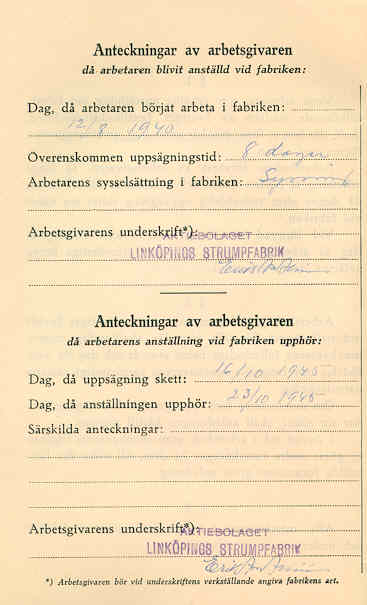 Anteckningar av arbetsgivaren
då arbetaren blivit anställd vid fabriken:
Dag, då arbetaren börjat arbeta i fabriken:
12/8 1940
Överenskommen uppsägningstid: 8 dagar
Arbetarens sysselsättning i fabriken:
Arbetsgivarens underskrift*):
AKTIEBOLAGET
LINKÖPINGS STRUMPFABRIK
Anteckningar av arbetsgivaren
då arbetarens anställning vid fabriken upphör:
Dag, då uppsägning skett: 16/10 1945
Dag, då anställningen upphör: 23/10 1945
Särskilda anteckningar:
Arbetsgivarens underskrift*):
AKTIEBOLAGET
LINKÖPINGS STRUMPFABRIK
*) Arbetsgivaren bör vid underskriftens verkställande angiva fabrikens art.